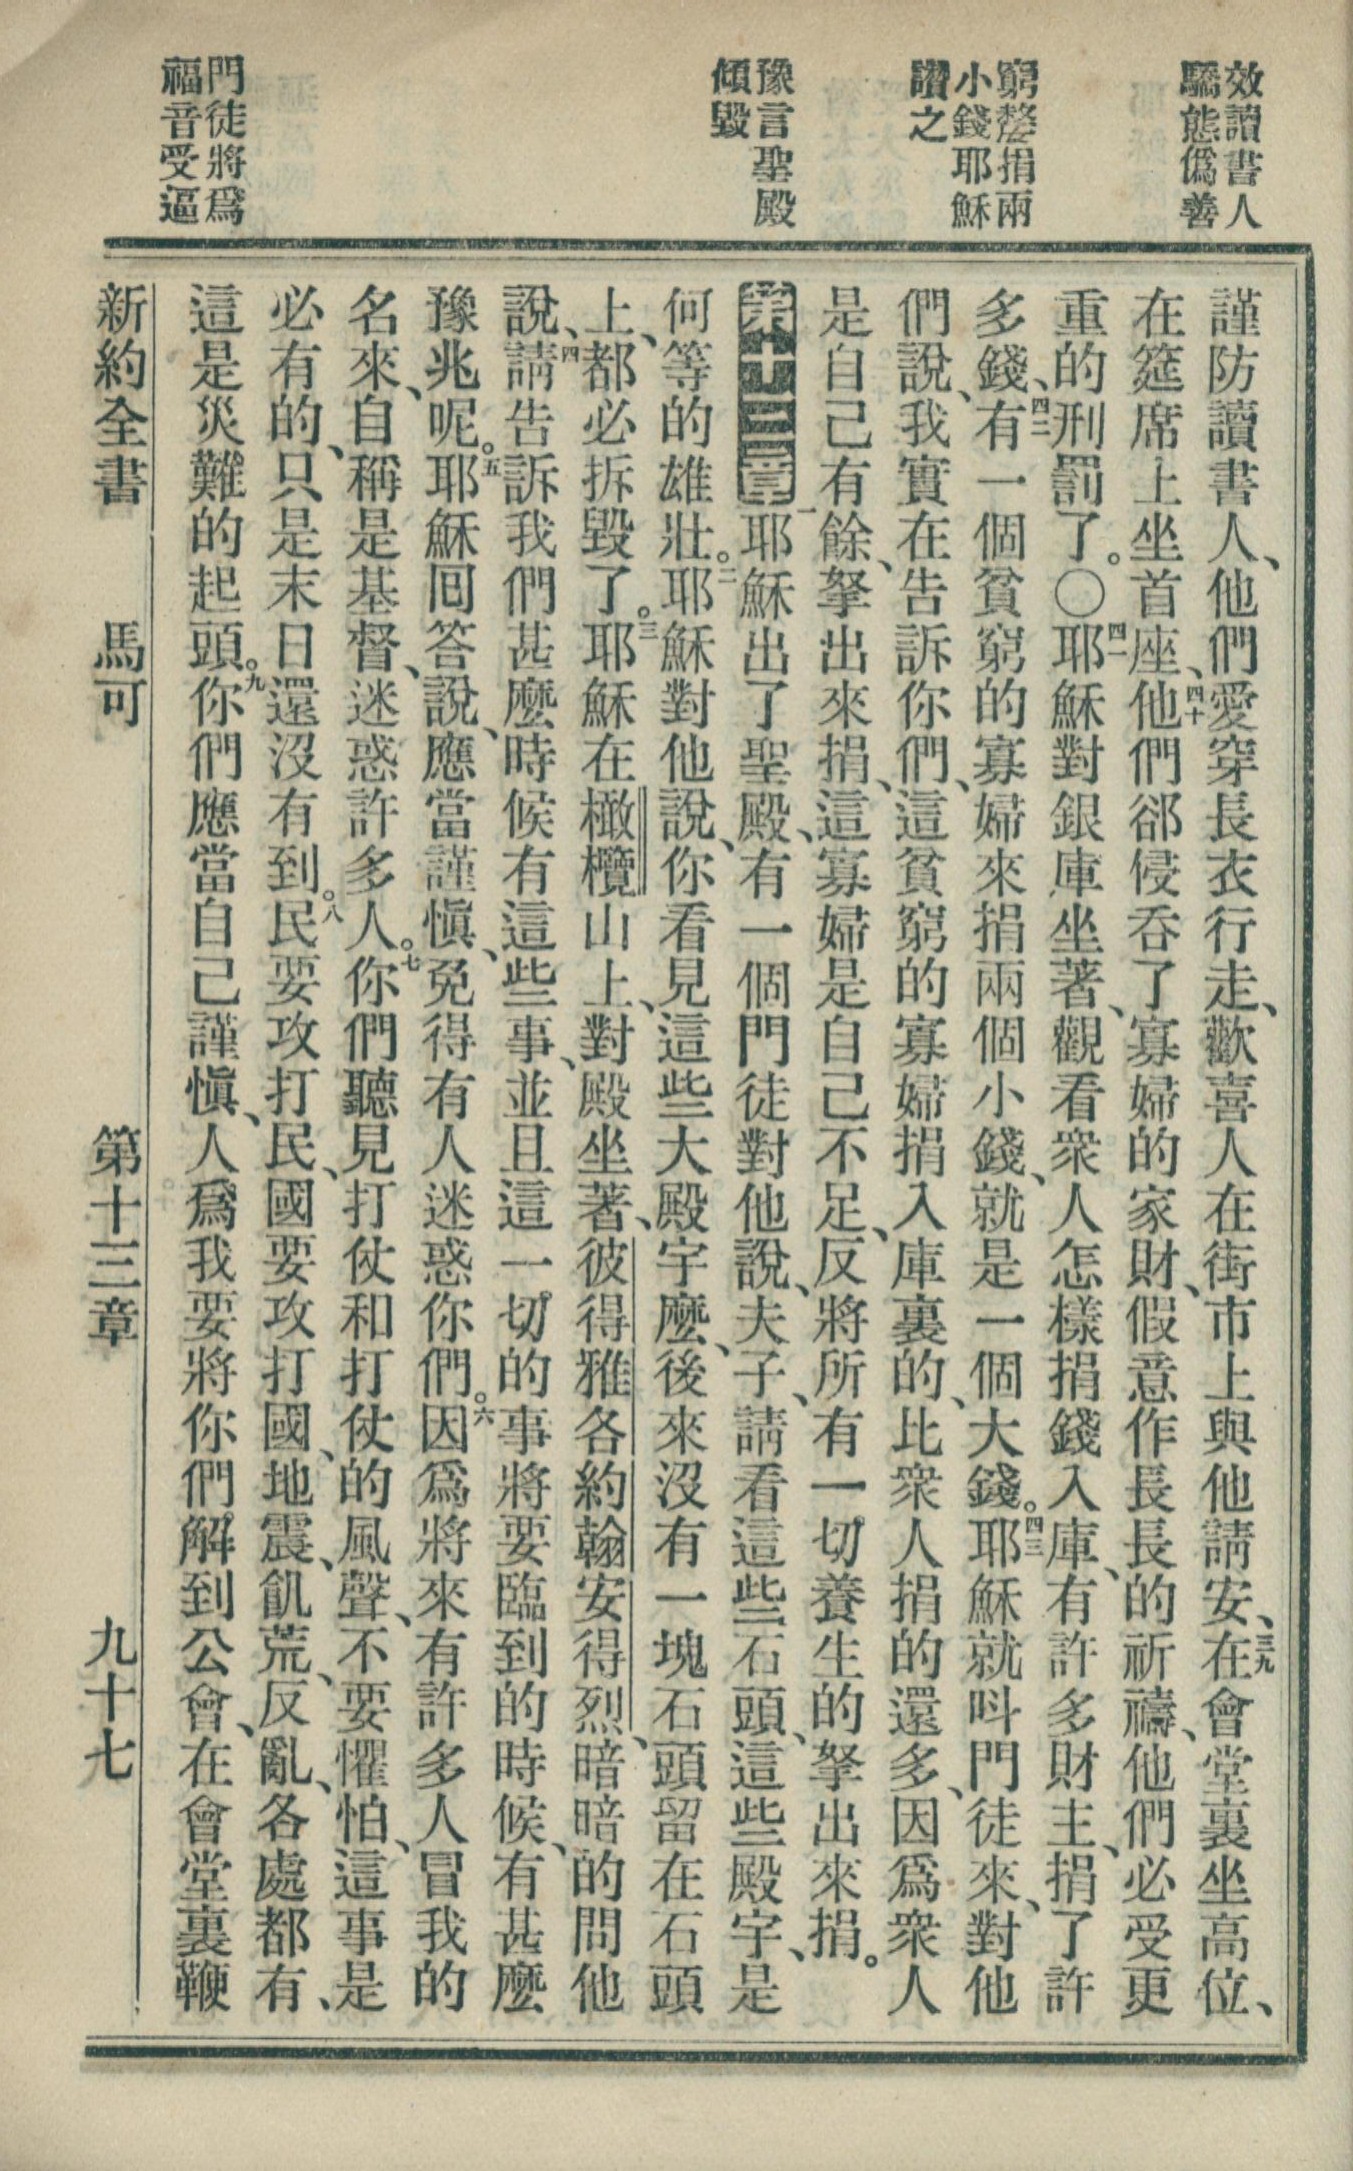 效讀書人
驕態僞善
窮嫠捐兩
小錢耶穌
讚之
豫言聖殿
傾毀
門徒將爲
福音受逼
謹防讀書人、他們愛穿長衣行走、歡喜人在街市上與他請安、三九在會堂裏坐高位、
在筵席上坐首座、四十他們郤侵吞了寡婦的家財、假意作長長的祈禱、他們必受更
重的刑罰了。○四一耶穌對銀庫坐著、觀看衆人怎樣捐錢入庫、有許多財主、捐了許
多錢、四二有一個貧窮的寡婦來捐兩個小錢、就是一個大錢。四三耶穌就呌門徒來、對他
們說、我實在告訴你們、這貧窮的寡婦捐入庫裏的、比衆人捐的還多、因爲衆人
是自己有餘、拏出來捐、這寡婦是自己不足、反將所有一切養生的拏出來捐。
第十三章一耶穌出了聖殿、有一個門徒對他說、夫子、請看這些石頭、這些殿宇、是
何等的雄壯。二耶穌對他說、你看見這些大殿宇麼、後來沒有一塊石頭留在石頭
上、都必拆毀了。三耶穌在橄欖山上、對殿坐著、彼得雅各約翰安得烈、暗暗的問他
說、四請告訴我們甚麼時候有這些事、並且這一切的事將要臨到的時候、有甚麼
豫兆呢。五耶穌回答說、應當謹愼、免得有人迷惑你們。六因爲將來有許多人冒我的
名來、自稱是基督、迷惑許多人。七你們聽見打仗和打仗的風聲、不要懼怕、這事是
必有的、只是末日還沒有到。八民要攻打民、國要攻打國、地震、飢荒、反亂、各處都有、
這是災難的起頭。九你們應當自己謹愼、人爲我要將你們解到公會、在會堂裏鞭
新約全書 馬可 第十三章 九十七